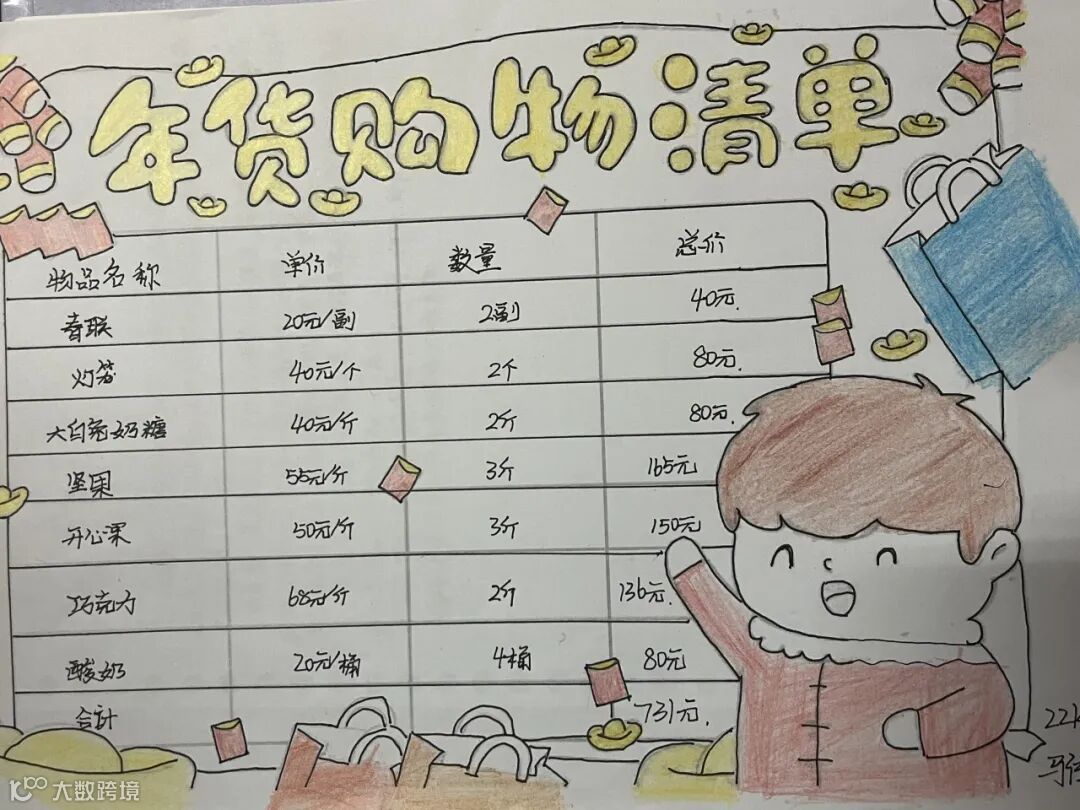 年货购物清单
物品名称 单价 数量 总价
春联 20元/副 2副 40元.
灯笼 40元/个 2个 80元.
大白兔奶糖 40元/斤 2斤 80元.
坚果 55元/斤 3斤 165元
开心果 50元/斤 3斤 150元
巧克力 68元/斤 2斤 136元.
酸奶 20元/桶 4桶 80元
合计 731元.
大数跨境